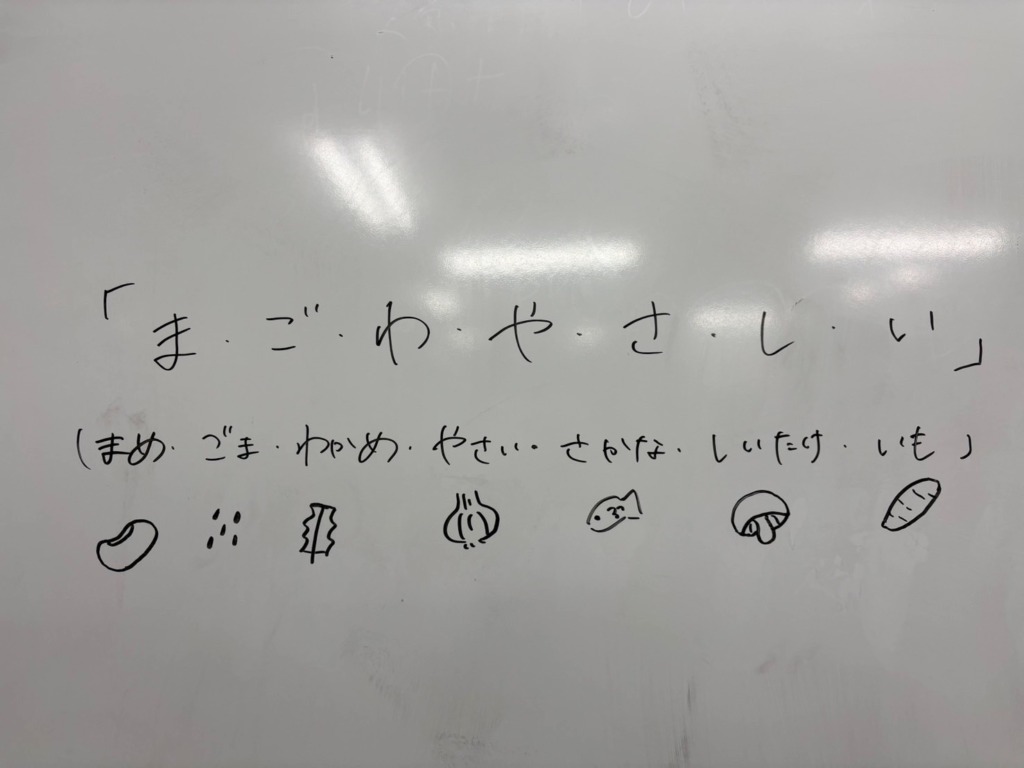 「ま・ご・わ・や・さ・し・い」
(まめ・ごま・わかめ・やさい・さかな・しいたけ・いも)